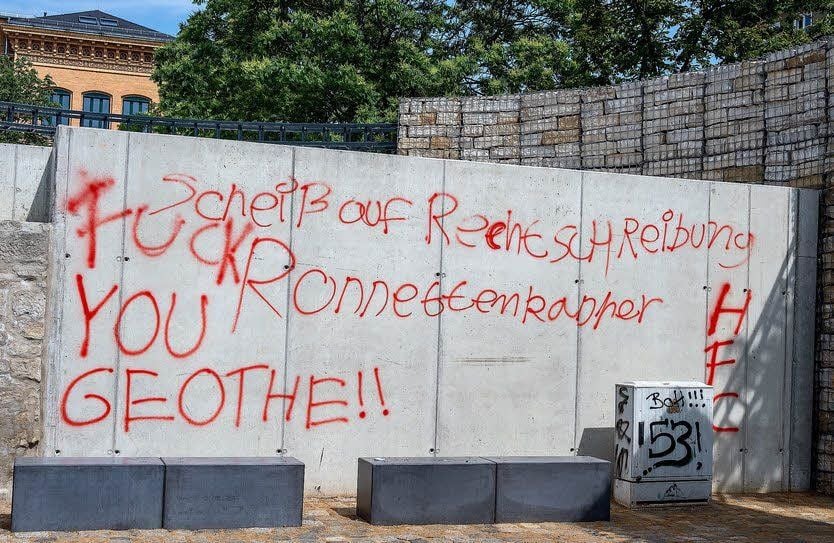 Scheiß auf RechtSCHReibung
FUCK
Ronnettenkapper
YOU
GEOTHE!!
HFC
BoH!!!
153!